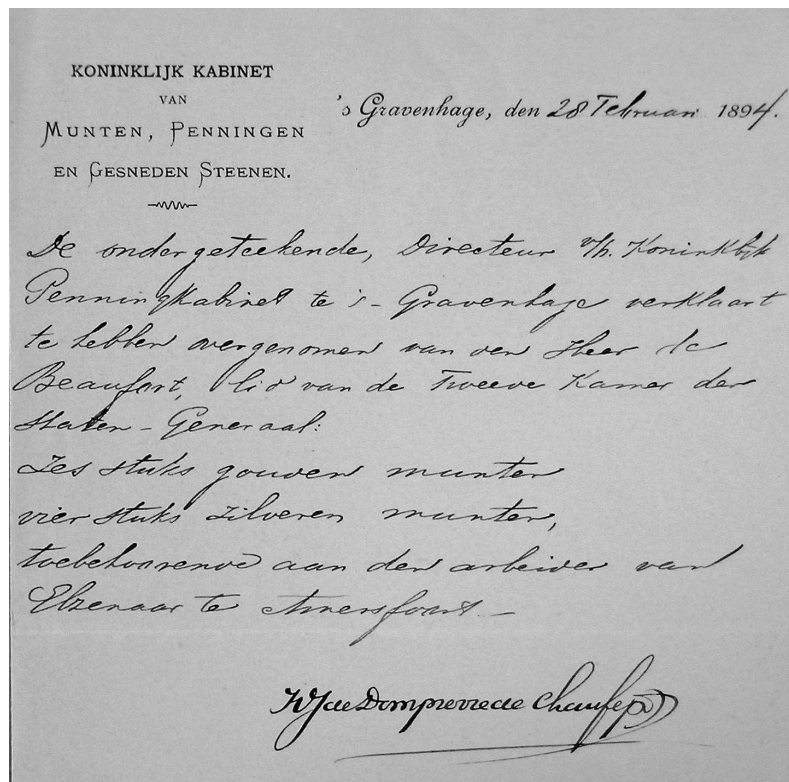 KONINKLIJK KABINET
VAN
MUNTEN, PENNINGEN
EN GESNEDEN STEENEN.
's Gravenhage, den 28 Februari 1894.
De ondergeteekende, Directeur v/h. Koninklijk
Penningkabinet te 's-Gravenhage verklaart
te hebben overgenomen van den Heer de
Beaufort, lid van de Tweede Kamer der
Staten-Generaal:
Zes stuks gouden munten
vier stuks zilveren munten,
toebehoorende aan den arbeider van
Elzenaar te Amersfoort.—
HJ de Dompierre de Chaufepié